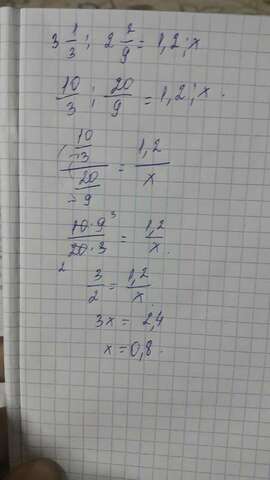 3 1/3 : 2 2/9 = 1,2 : x
10/3 : 20/9 = 1,2 : x.
(10/3)/(20/9) = 1,2/x
10·9/20·3 = 1,2/x.
3/2 = 1,2/x.
3x = 2,4
x = 0,8.